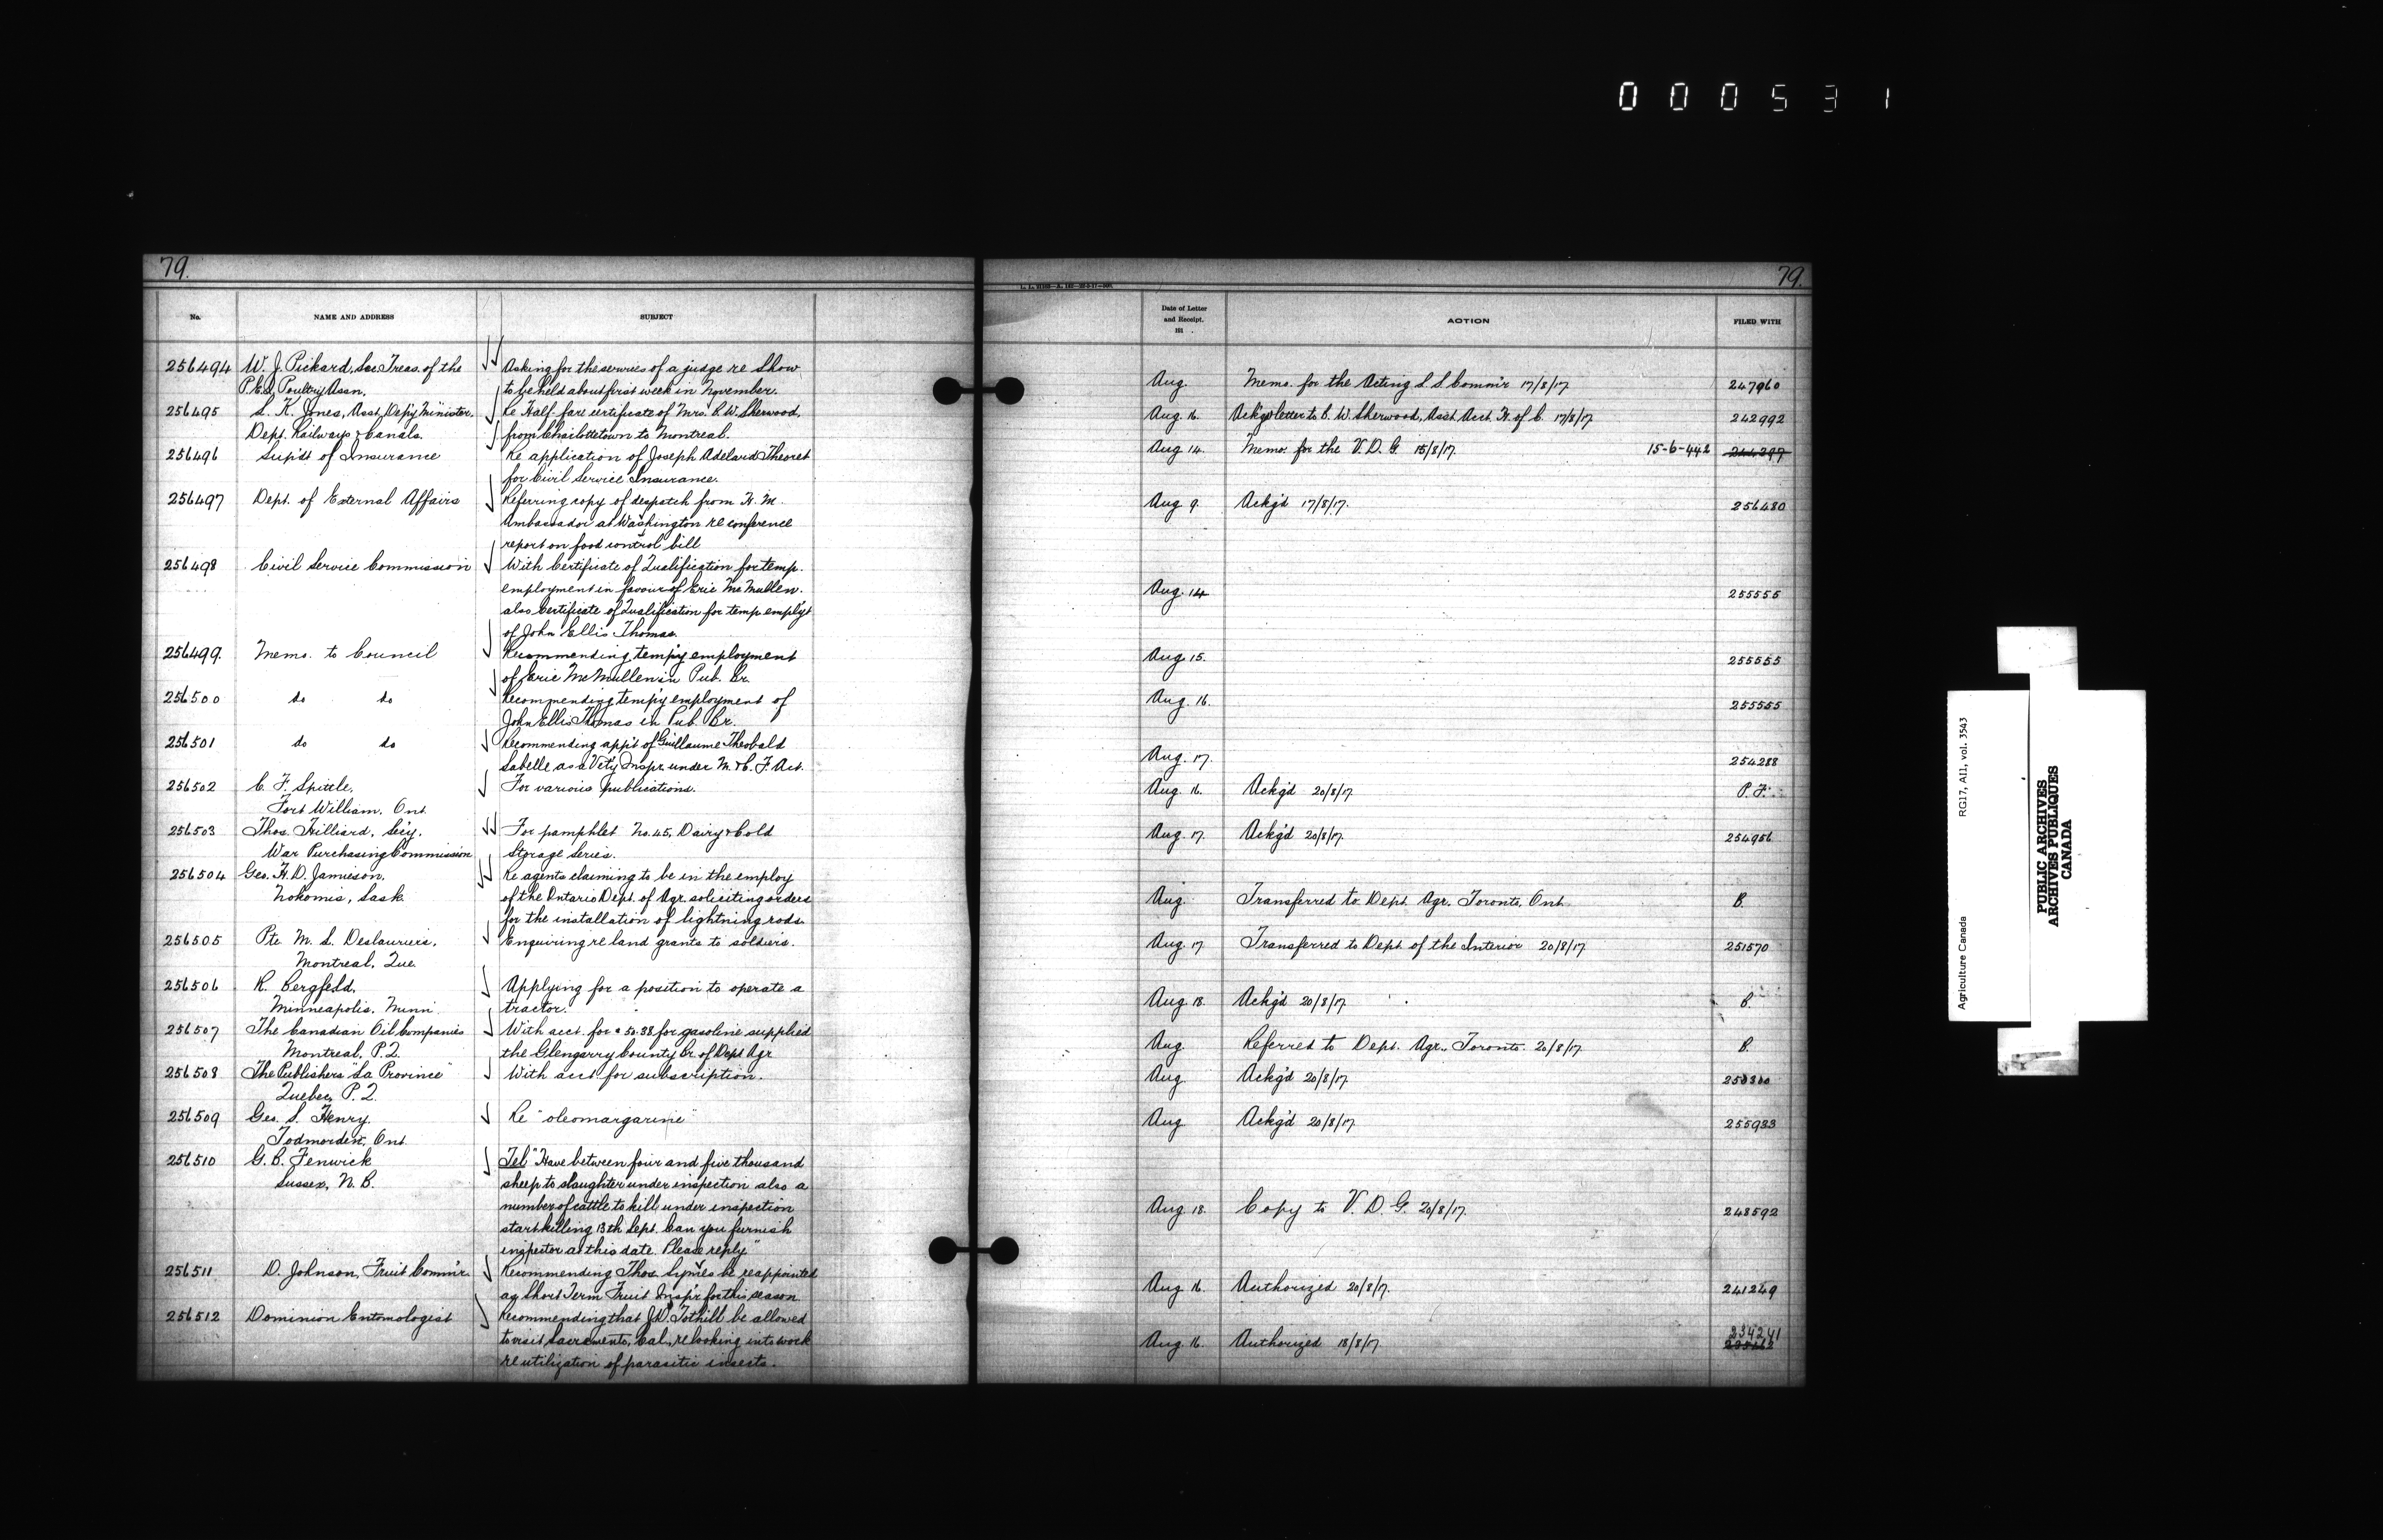 000531
79.
No.
NAME AND ADDRESS
SUBJECT
256494 W. J. Pickard, Sec. Treas. of the
P.E.I. Poultry Assn.
Asking for the services of a judge re Show
to be held about first week in November.
256495 S. K. Jones, Asst. Dep'y Minister,
Dept. Railways & Canals.
Re Half-fare certificate of Mrs. C. W. Sherwood,
from Charlottetown to Montreal.
256496 Sup'dt of Insurance
Re application of Joseph Adelard Theoret
for Civil Service Insurance.
256497 Dept. of External Affairs
Referring copy of despatch from H. M.
Ambassador at Washington re conference
report on food control bill
256498 Civil Service Commission
With Certificate of Qualification for temp.
employment in favour of Eric McMullen.
also Certificate of Qualification for temp. empl'y't
of John Ellis Thomas.
256499. Memo. to Council
Recommending temp'y employment
of Eric McMullen in Pub. Br.
256500 do do
Recommending temp'y employment of
John Ellis Thomas in Pub. Br.
256501 do do
Recommending app't of Guillaume Theobald
Labelle as a Vet'y Inspr. under M. & C. F. Act.
256502 C. F. Spittle,
Fort William, Ont.
For various publications.
256503 Thos. Hilliard, Sec'y.
War Purchasing Commission
For pamphlet No. 45, Dairy & Cold
Storage Series.
256504 Geo. H. D. Jamieson,
Nokomis, Sask.
Re agents claiming to be in the employ
of the Ontario Dept. of Agr. soliciting orders
for the installation of lightning rods.
256505 Pte. M. S. Deslauriers,
Montreal, Que.
Enquiring re land grants to soldiers.
256506 R. Bergfeld,
Minneapolis, Minn.
Applying for a position to operate a
tractor.
256507 The Canadian Oil Companies
Montreal, P.Q.
With acct. for $50.38 for gasoline supplied
the Glengarry County Br. of Dept. Agr.
256508 The Publishers "La Province"
Quebec, P.Q.
With acct for subscription.
256509 Geo. S. Henry
Todmorden, Ont.
Re "oleomargarine"
256510 G. B. Fenwick
Sussex, N. B.
Tel "Have between four and five thousand
sheep to slaughter under inspection also a
number of cattle to kill under inspection
start killing 13th Sept. Can you furnish
inspector at this date. Please reply"
256511 D. Johnson, Fruit Comm'r.
Recommending Thos. Symes be reappointed
as Short Term Fruit Insp'r for this season
256512 Dominion Entomologist
Recommending that J.D. Tothill be allowed
to visit Sacramento, Cal., re looking into work
re utilization of parasitic insects.
79.
Date of Letter
and Receipt.
191 .
ACTION
FILED WITH
Aug. Memo. for the Acting L S Comm'r 17/8/17 247960
Aug. 16. Ackg'd letter to C. W. Sherwood, Asst. Acct. H. of C. 17/8/17 242992
Aug 14. Memo. for the V. D. G. 15/8/17. 15-6-442 244297
Aug 9. Ackg'd 17/8/17. 256480
Aug. 14 255555
Aug 15. 255555
Aug. 16. 255555
Aug. 17. 254288
Aug 16. Ackg'd 20/8/17. P. F.
Aug. 17. Ackg'd 20/8/17. 254956
Aug. Transferred to Dept. Agr. Toronto, Ont. B.
Aug. 17 Transferred to Dept of the Interior 20/8/17. 251570
Aug 18. Ackg'd 20/8/17. B.
Aug Referred to Dept. Agr., Toronto. 20/8/17. B.
Aug. Ackg'd 20/8/17.
Aug Ackg'd 20/8/17. 255983
Aug. 18. Copy to V. D. G. 20/8/17. 248592
Aug 16. Authorized 20/8/17. 241249
234241
Aug. 16. Authorized 18/8/17.
Agriculture Canada RG17, A11, vol. 3543
PUBLIC ARCHIVES
ARCHIVES PUBLIQUES
CANADA